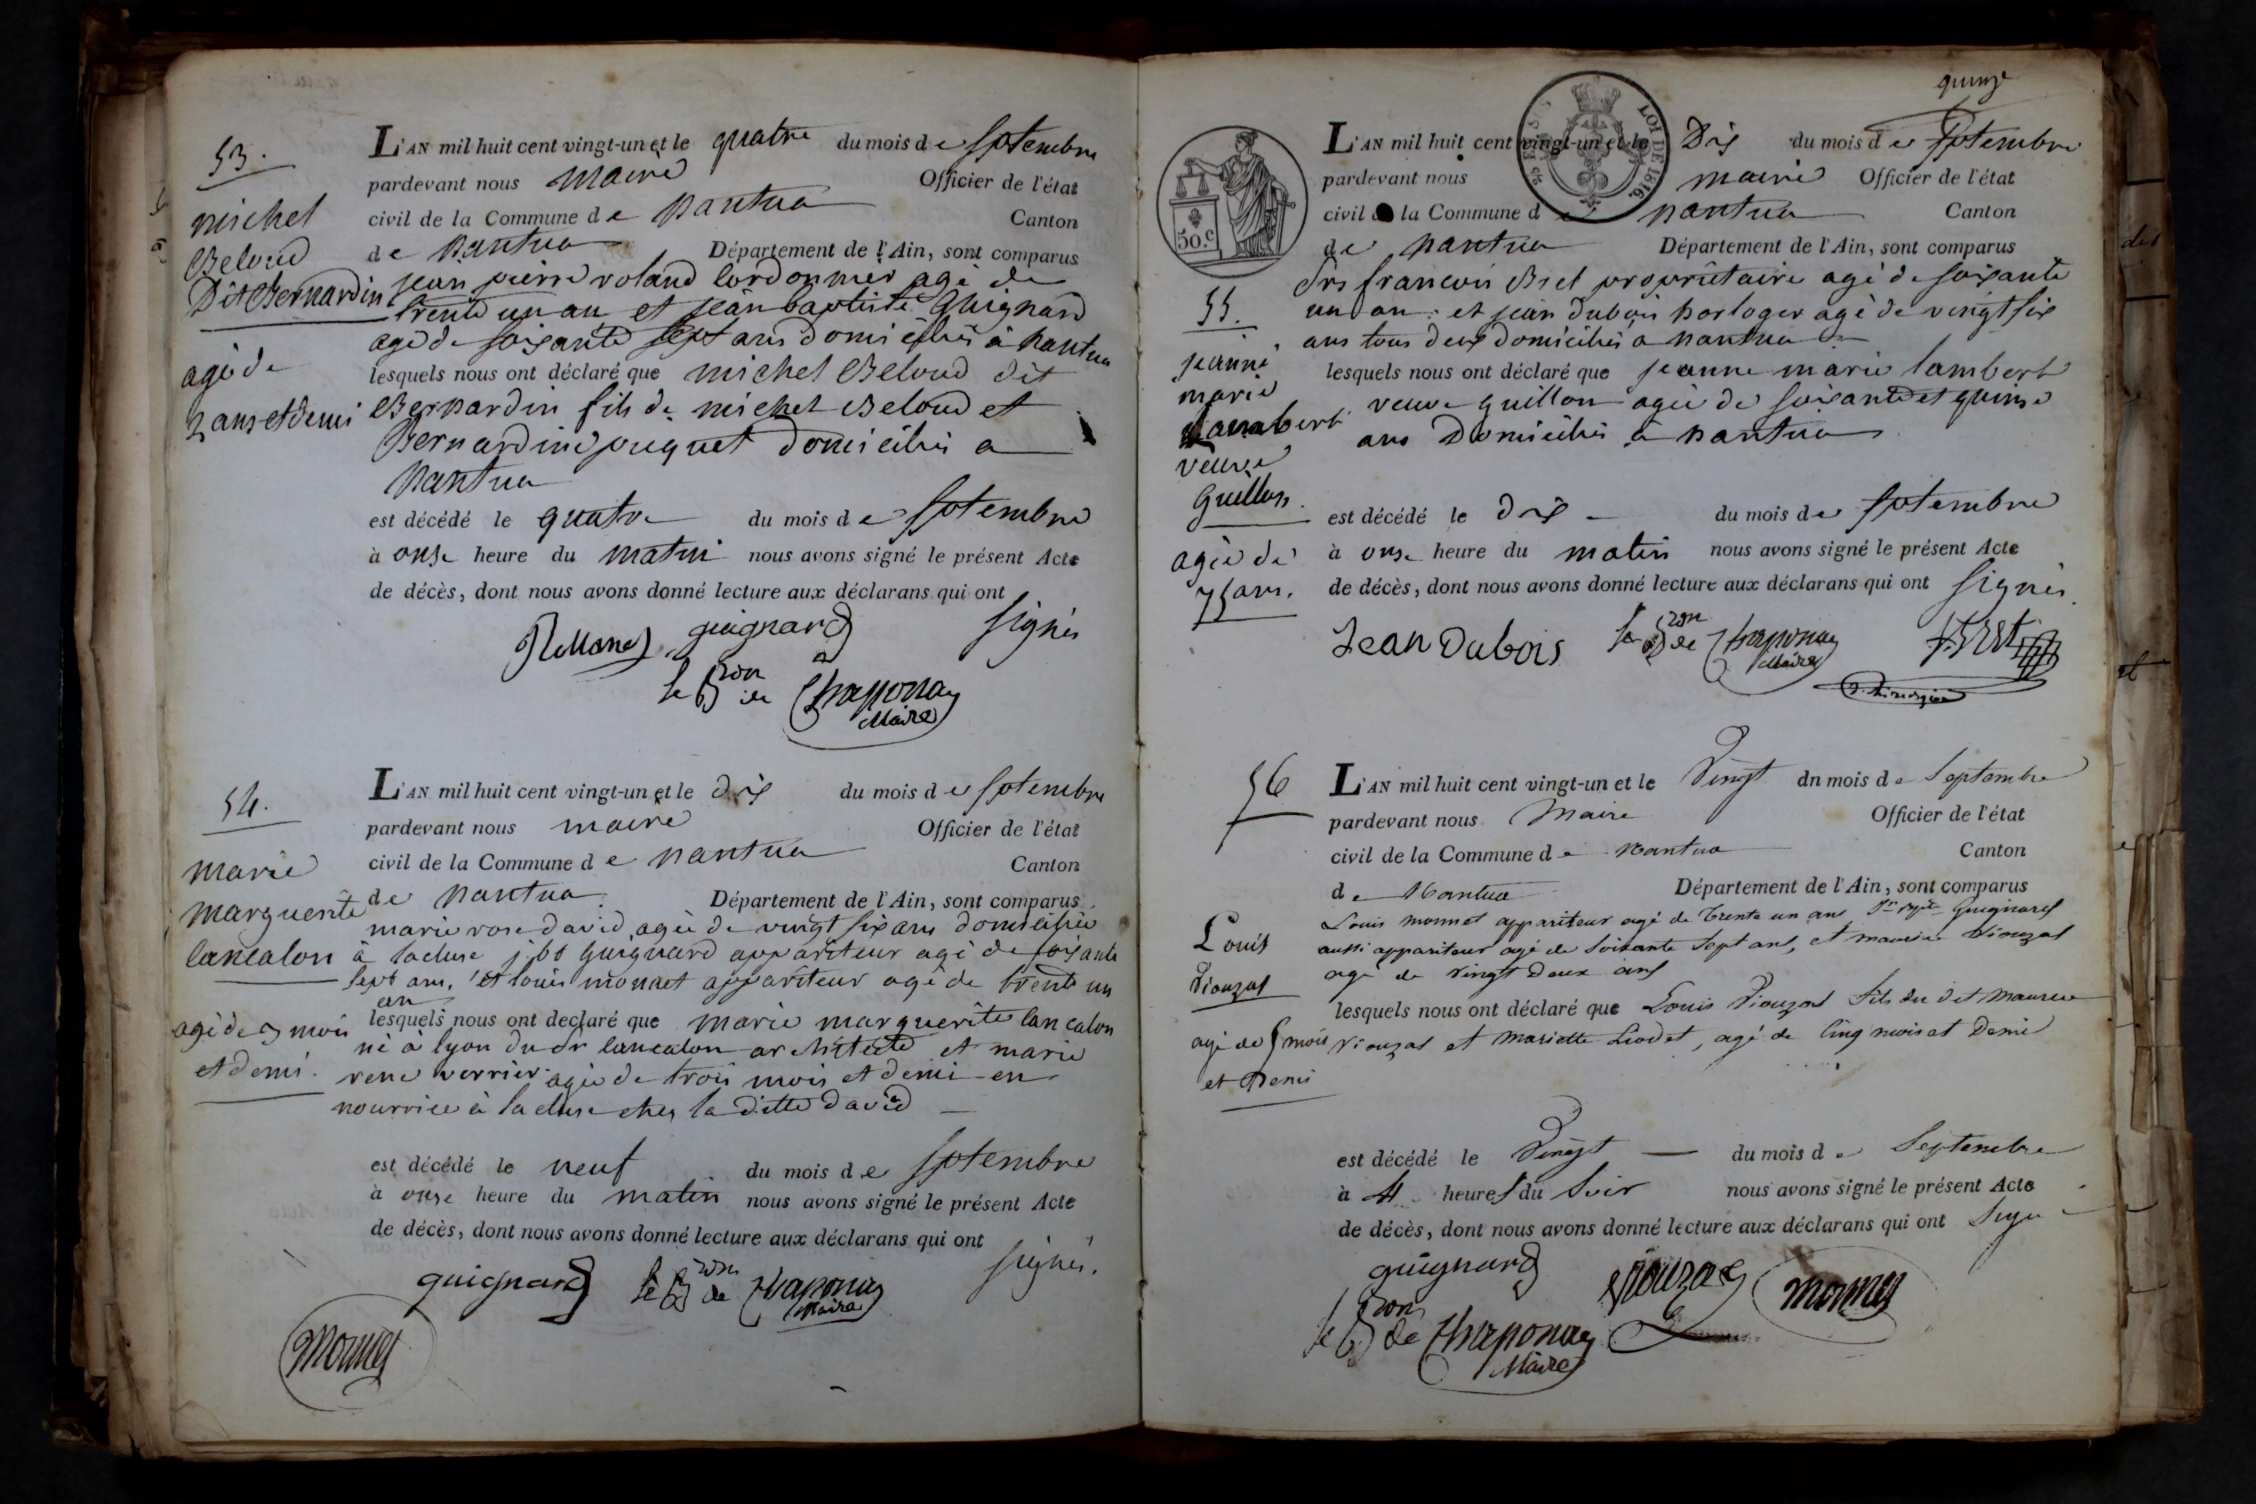 53.
michel
Beloud
Dit Bernardin
agé de
2 ans et demi
L'AN mil huit cent vingt-un et le quatre du mois de septembre
pardevant nous maire Officier de l'état
civil de la Commune de nantua Canton
de nantua Département de l'Ain, sont comparus
jean pierre roland cordonnier agé de
trente un an et jean baptiste Guignard
agé de soisante sept ans domiciliés à nantua
lesquels nous ont déclaré que michel Beloud dit
Bernardin fils de michel Beloud et
Bernardine jouquet domiciliés a
nantua
est décédé le quatre du mois de septembre
à onse heure du matin nous avons signé le présent Acte
de décès, dont nous avons donné lecture aux déclarans qui ont
signés
guignard
le Bon de Chaponay
Maire
54.
marie
marguerite
lancalon
agé de 3 mois
et demi.
L'AN mil huit cent vingt-un et le dix du mois de septembre
pardevant nous maire Officier de l'état
civil de la Commune de nantua Canton
de nantua Département de l'Ain, sont comparus
marie rose david agée de vingt six ans domiciliée
à lacluse j. bt guignard appariteur agé de soisante
sept ans, et louis monnet appariteur agé de trente un
an
lesquels nous ont déclaré que marie marguerite lancalon
né à lyon du sr lancalon architecte et marie
rene verrier agée de trois mois et demi en
nourrice à lacluse ches la ditte david
est décédé le neuf du mois de septembre
à onse heure du matin nous avons signé le présent Acte
de décès, dont nous avons donné lecture aux déclarans qui ont
signés.
guignard le Bon de Chaponay
Maire
Monnet
quinze
LOI DE 1816.
50.c
55.
jeanne
marie
Lambert
veuve
Guillon.
agée de
75 ans.
L'AN mil huit cent vingt-un et le Dix du mois de septembre
pardevant nous maire Officier de l'état
civil la Commune de nantua Canton
de nantua Département de l'Ain, sont comparus
srs francois propriétaire agé de soisante
un an : et jean Dubois horloger agé de vingt six
ans tous deux domiciliés à nantua
lesquels nous ont déclaré que jeanne marie lambert
veuve guillon agée de soisante et quinse
ans Domiciliés à nantua
est décédé le dix du mois de septembre
à onse heure du matin nous avons signé le présent Acte
de décès, dont nous avons donné lecture aux déclarans qui ont signés.
Jean Dubois le Bon de Chaponay
Maire
56
Louis
Viouzat
agé de 5 mois
et Demi
L'AN mil huit cent vingt-un et le Vingt dn mois de Septembre
pardevant nous Maire Officier de l'état
civil de la Commune de Nantua Canton
de Nantua Département de l'Ain, sont comparus
Louis monnet appariteur agé de Trente un ans Jn Bpte Guignard
aussi appariteur agé de Soixante Sept ans, et maurice Viouzat
agé de Vingt Deux ans
lesquels nous ont déclaré que Louis Viouzat fils du dit Maurice
Viouzat et Mariette Liodet, agé de Cinq mois et Demi
est décédé le Vingt du mois de Septembre
à 4 heures du Soir nous avons signé le présent Acte
de décès, dont nous avons donné lecture aux déclarans qui ont Signé
guignard Viouzat Monnet
le Bon de Chaponay
Maire